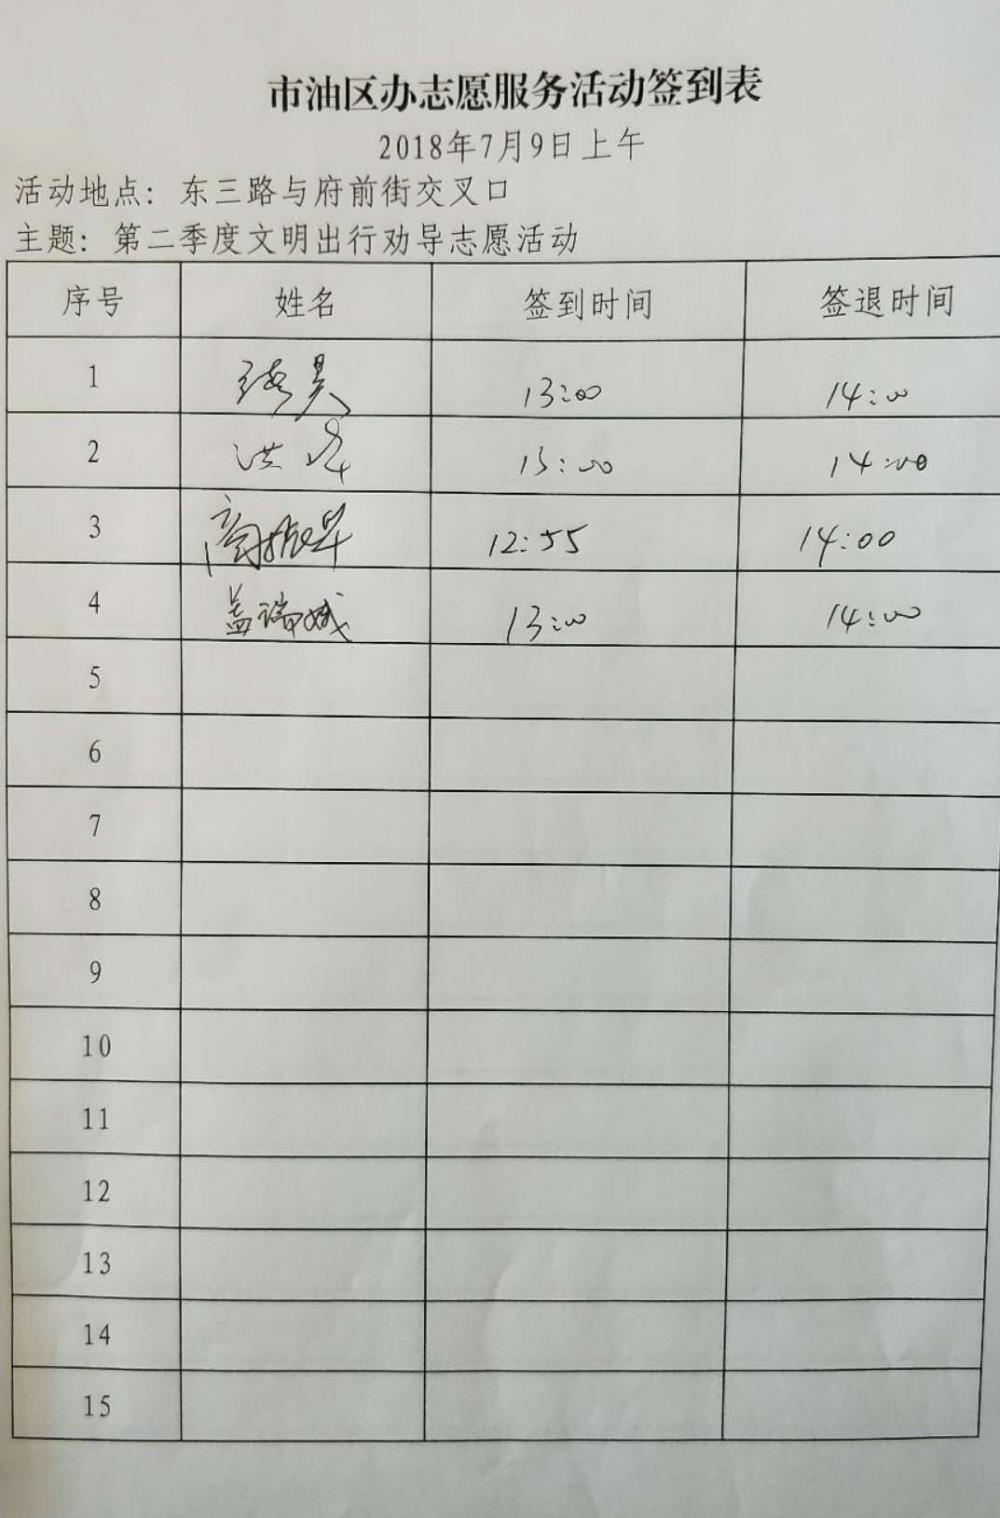 市油区办志愿服务活动签到表
2018年7月9日上午
活动地点：东三路与府前街交叉口
主题：第二季度文明出行劝导志愿活动
序号 姓名 签到时间 签退时间
1 13:00 14:00
2 洪 13:00 14:00
3 商振华 12:55 14:00
4 盖瑞娥 13:00 14:00
5
6
7
8
9
10
11
12
13
14
15